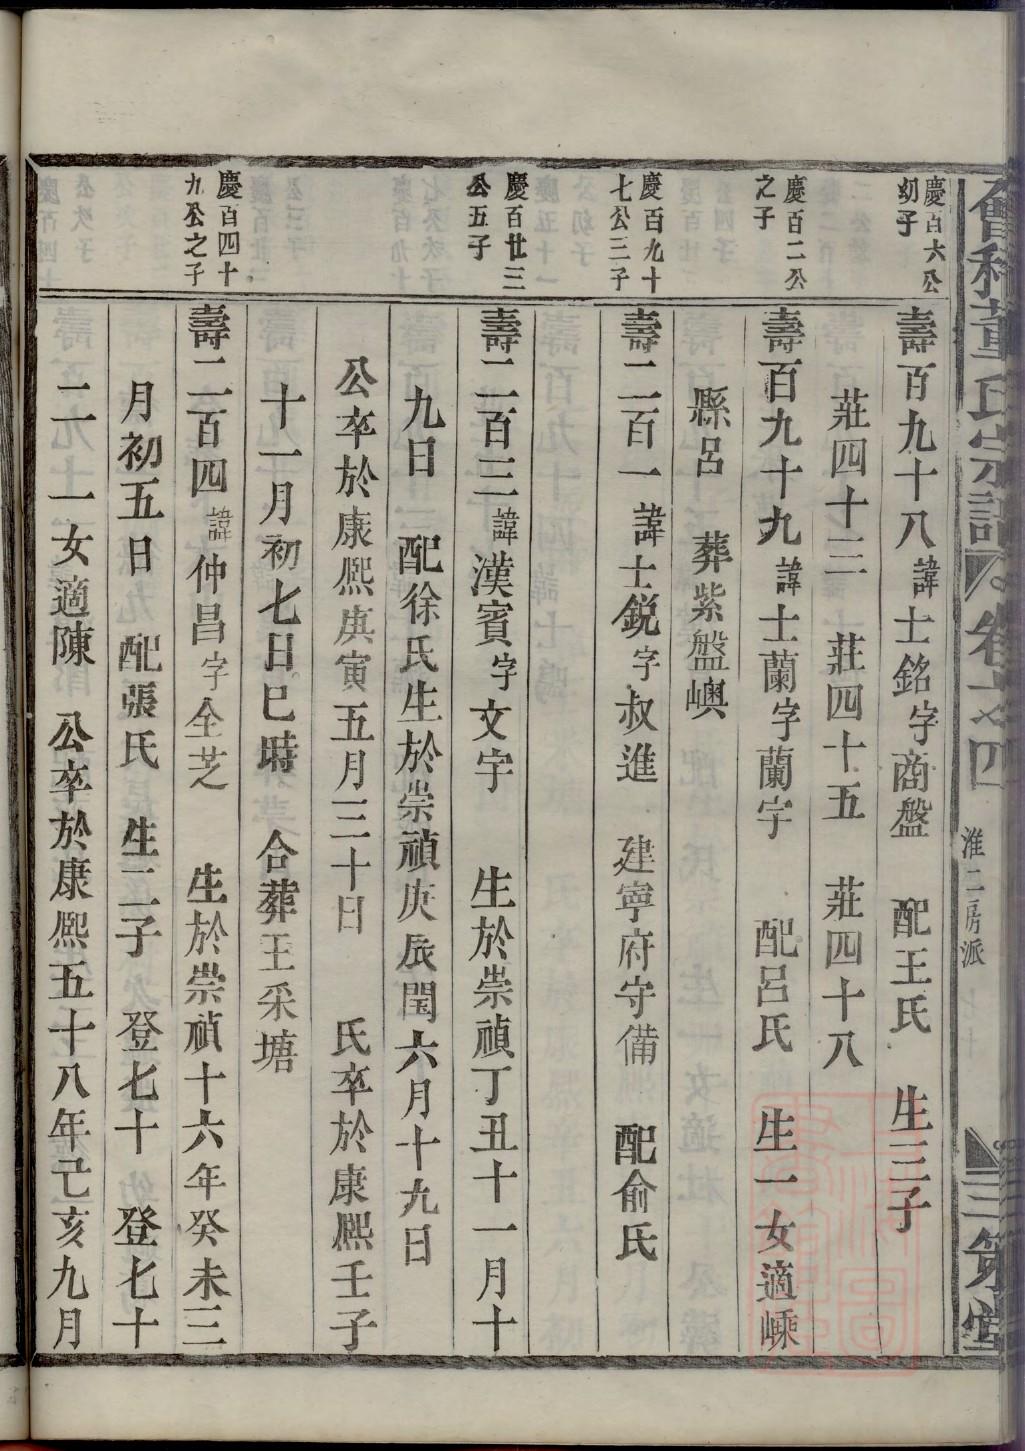 會稽董氏宗譜 卷之四 淮二房派 三策堂
慶百六公
幼子
壽百九十八諱士銘字商盤 配王氏 生三子
莊四十三 莊四十五 莊四十八
慶百二公
之子
壽百九十九諱士蘭字蘭宇 配呂氏 生一女適嵊
縣呂 葬紫盤嶴
慶百九十
七公三子
壽二百一諱士鋭字叔進 建寧府守備 配俞氏
慶百廿三
公五子
壽二百三諱漢賓字文宇 生於崇禎丁丑十一月十
九日 配徐氏生於崇禎庚辰閏六月十九日
公卒於康熙庚寅五月三十日 氏卒於康熙壬子
十一月初七日巳時 合葬王采塘
慶百四十
九公之子
壽二百四諱仲昌字全芝 生於崇禎十六年癸未三
月初五日 配張氏 生二子 登七十 登七十
二 一女適陳 公卒於康熙五十八年己亥九月